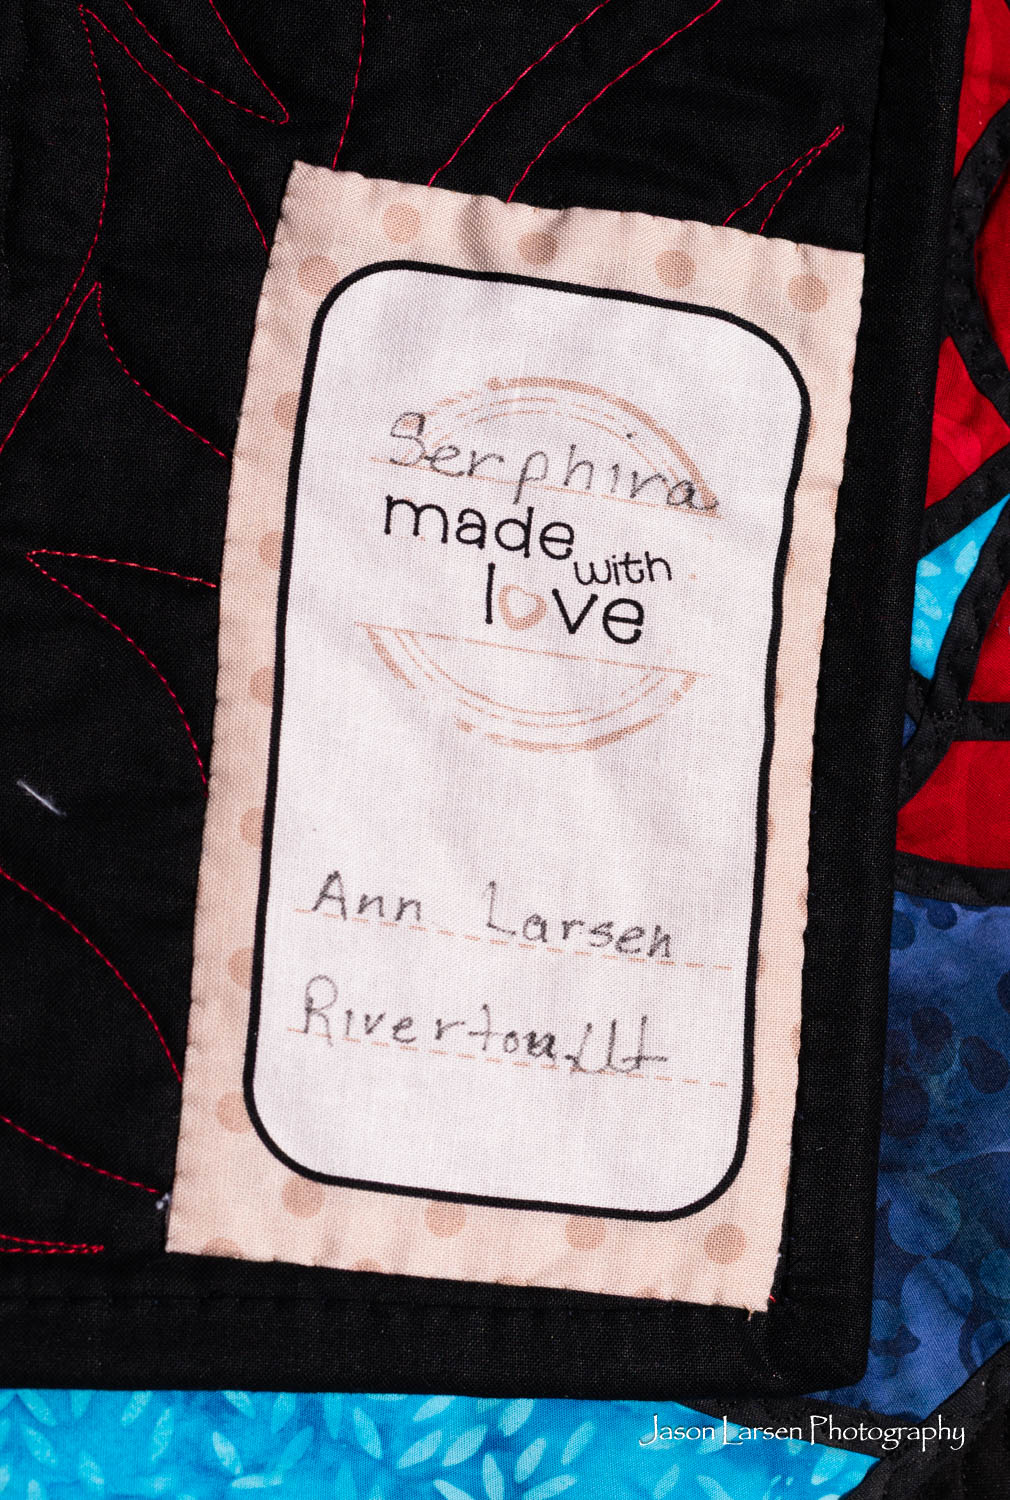 Serphira
made with
love
Ann Larsen
Riverton, Ut
Jason Larsen Photography